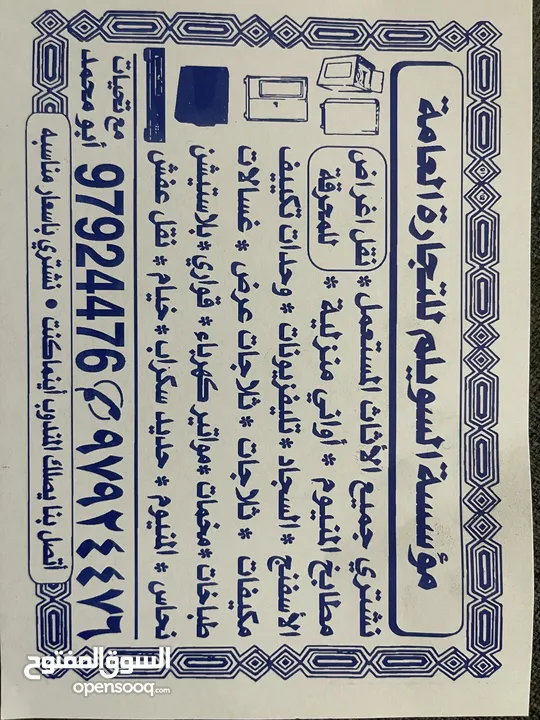 مؤسسة السويلم للتجارة العامة
نشتري جميع الأثاث المستعمل * نقل اغراض
مطابخ المنيوم * أواني منزلية * للمحرقة
الأسفنج * السجاد * تليفزيونات * وحدات تكييف
مكيفات * ثلاجات * ثلاجات عرض * غسالات
طباخات * مخمات * مواتير كهرباء * قواري * بلاستيشن
نحاس * المنيوم * حديد سكراب * خيام * نقل عفش
مع تحيات
أبو محمد
97924476 ✆ ٩٧٩٢٤٤٧٦
أتصل بنا يصلك المندوب أينما كنت • نشتري باسعار مناسبه
السوق المفتوح
opensooq.com